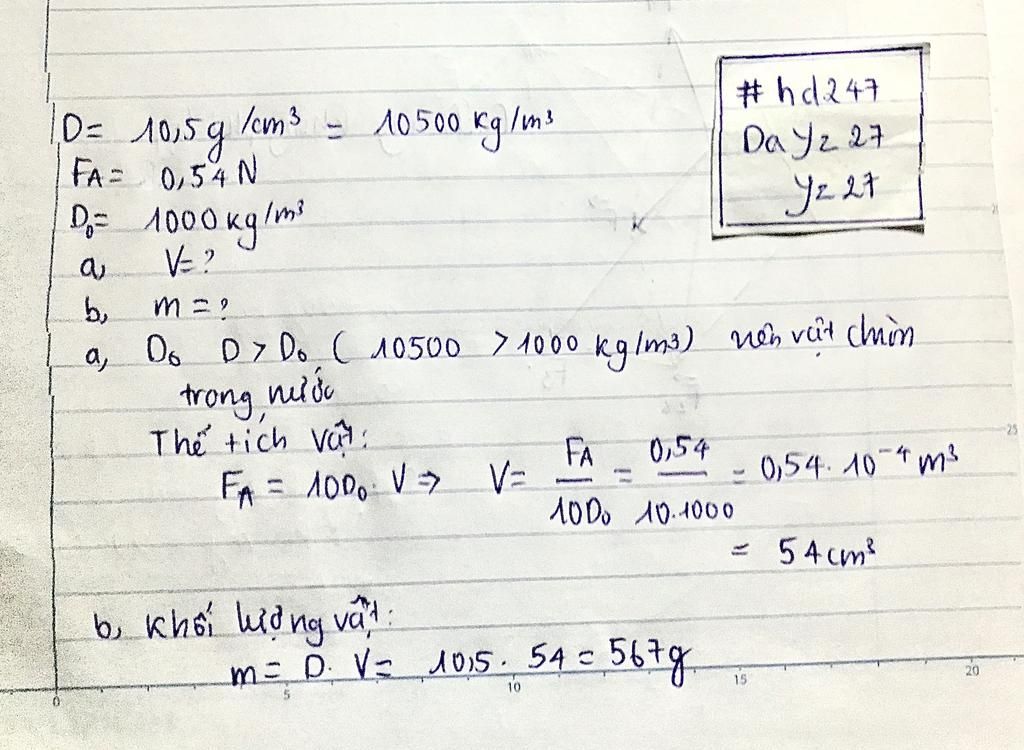 # hd247
Da Yz 27
Yz 27
D = 10,5g/cm³ = 10500 kg/m³
FA = 0,54 N
D₀ = 1000 kg/m³
a, V = ?
b, m = ?
a, Do D > D₀ ( 10500 > 1000 kg/m3) nên vật chìm
trong nước
Thế tích vật:
FA = 10D₀. V => V = FA/10D₀ = 0,54/10.1000 = 0,54. 10⁻⁴ m³
= 54cm³
b, Khối lượng vật:
m = D. V = 10,5. 54 = 567g
0 5 10 15 20
25